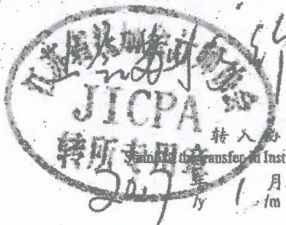 江苏省注册会计师协会
JICPA
转所专用章
转入协
Stamp of the transfer-in Inst
2017 年 1 月
/y /m